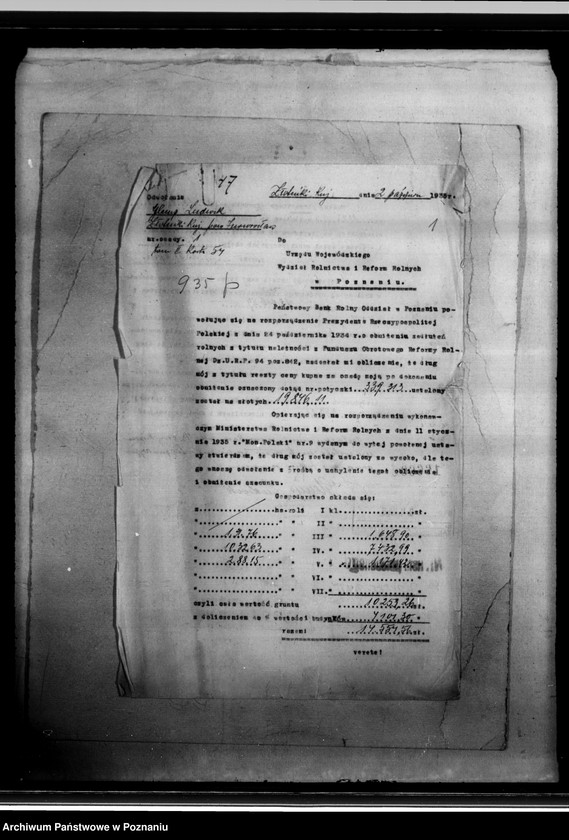 47
dnia 2 październ. 1935r.
Osadnik
1
Do
Urzędu Wojewódzkiego
Wydział Rolnictwa i Reform Rolnych
w Poznaniu.
935 p
Państwowy Bank Rolny Oddział w Poznaniu po-
wołując się na rozporządzenie Prezydenta Rzeczypospolitej
Polskiej z dnia 24 października 1934 r. o obniżeniu zadłużeń
rolnych z tytułu należności z Funduszu Obrotowego Reformy Rol-
nej Dz.U.R.P. 94 poz.842, nadesłał mi obliczenie, że dług
mój z tytułu reszty ceny kupna za osadę moją po dokonaniu
obniżenia oznaczony dotąd nr.pożyczki 339.213 ustalony
został na złotych 19.846.11.
Opierając się na rozporządzeniu wykonaw-
czym Ministerstwa Rolnictwa i Reform Rolnych z dnia 11 stycz-
nia 1935 r."Mon.Polski" nr.9 wydanym do wyżej powołanej usta-
wy stwierdzam, że dług mój został ustalony za wysoko, dla te-
go wnoszę odwołanie z prośbą o uchylenie tegoż obliczenia
i obniżenie szacunku.
Gospodarstwo składa się:
z ha.roli I kl. zł.
" " " II " "
" 1.91.76 " " III " 1.648.90 "
" 10.32.63 " " IV. " 7.432,99 "
" 2.88.15 " " V. " "
" " " VI. " "
" " " VII. " "
czyli cała wartość gruntu 10.253,26 zł.
z doliczeniem za wartości budynków "
razem: zł.
verte!
Archiwum Państwowe w Poznaniu